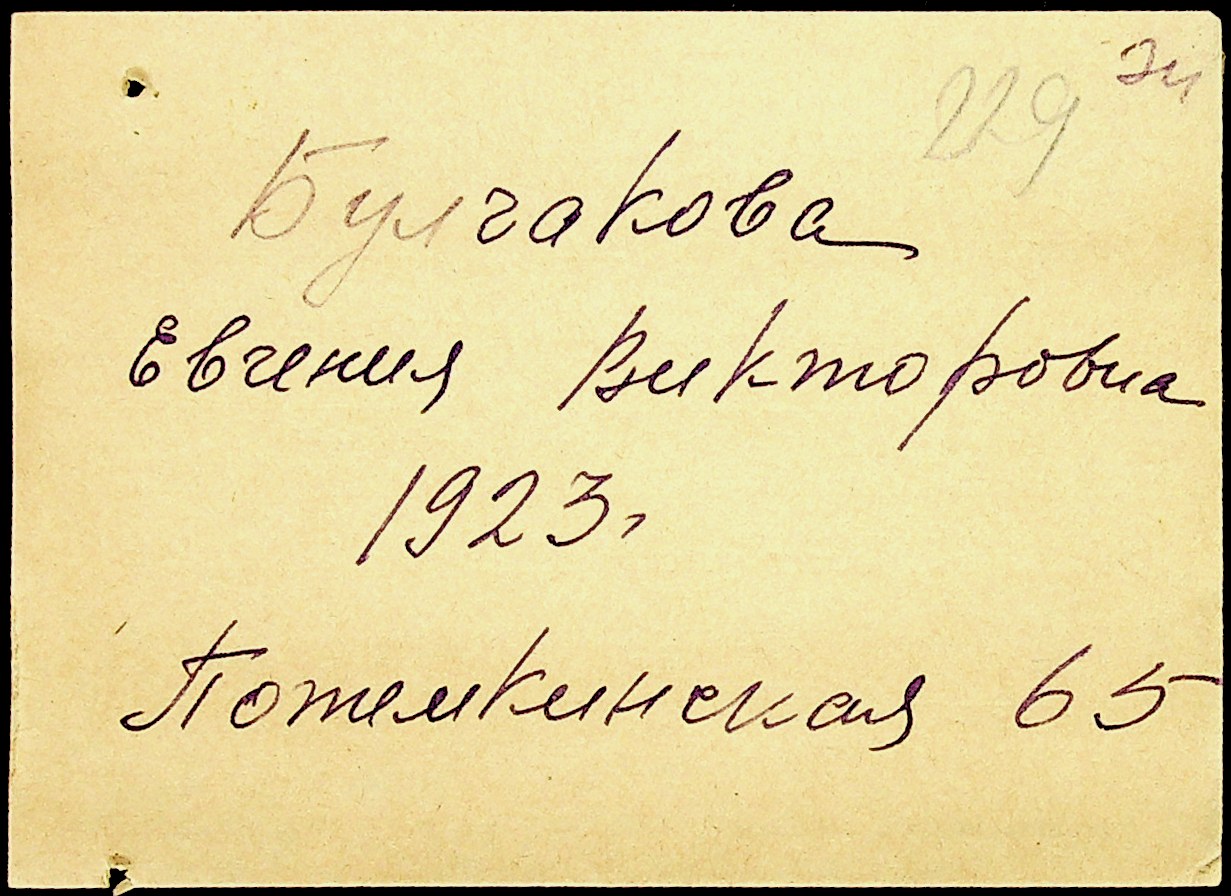 229
Булгакова
Евгения Викторовна
1923г
Потемкинская 65